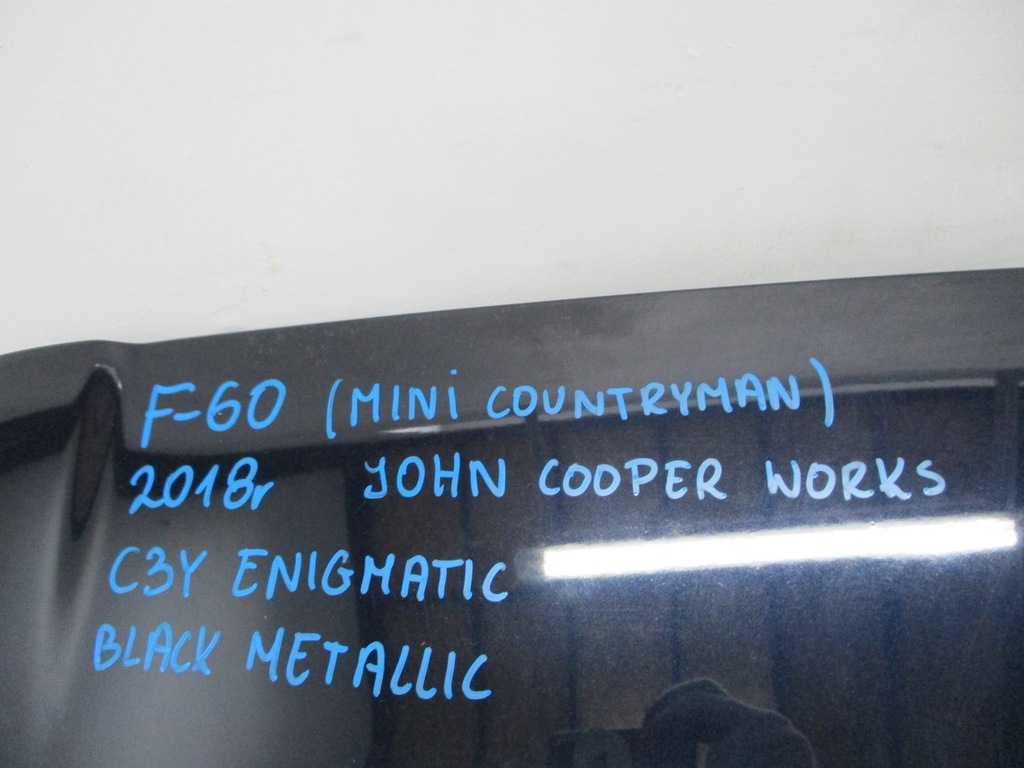 F-60 (MINI COUNTRYMAN)
2018r JOHN COOPER WORKS
C3Y ENIGMATIC
BLACK METALLIC